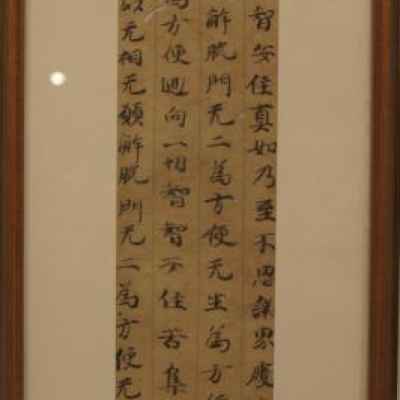 智安住真如乃至不思議界慶
解脱門无二為方便无生為方便
為方便迴向一切智智不住苦集
以无相无願解脱門无二為方便无